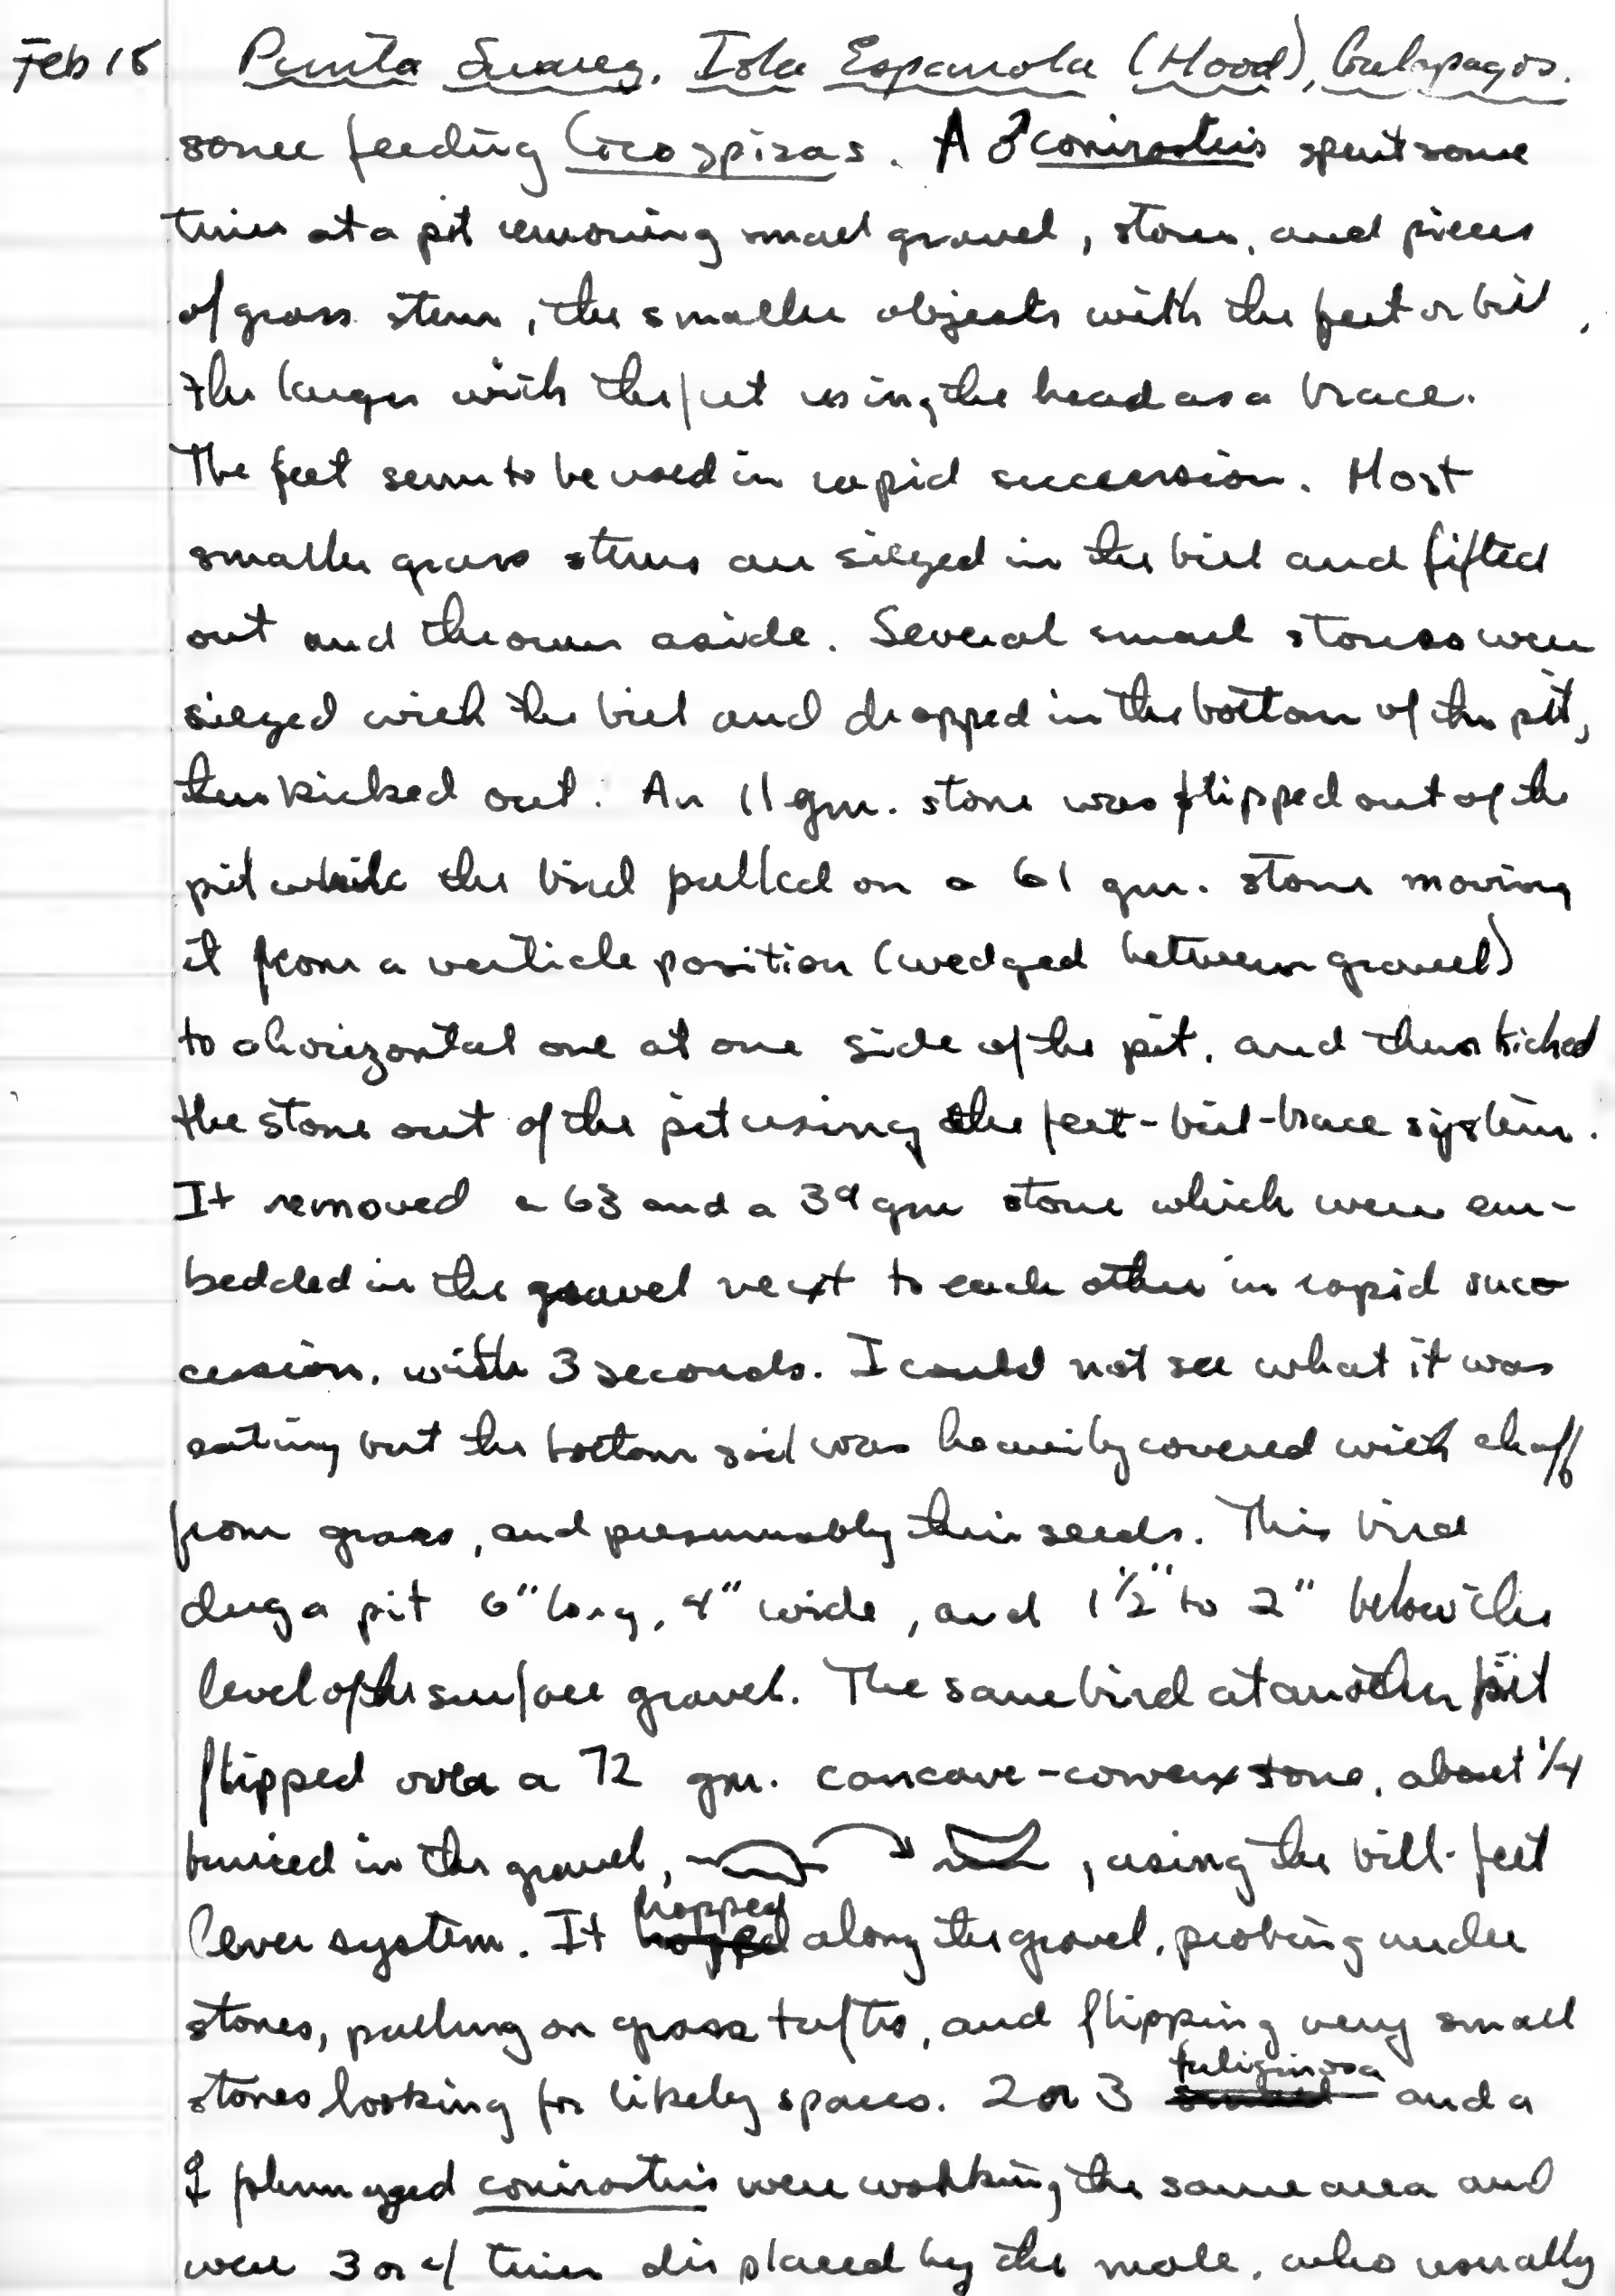 Feb 18 Punta Suarez, Isla Espanola (Hood), Galapagos.
some feeding Cocospizas. A ♂ conirostris spent some
time at a pit removing small gravel, stones, and pieces
of grass stem, the smaller objects with the feet or bill,
the larger with the feet using the head as a brace.
The feet seem to be used in rapid succession. Most
smaller grass stems are siezed in the bill and lifted
out and thrown aside. Several small stones were
siezed with the bill and dropped in the bottom of the pit,
then kicked out. An 11 gm. stone was flipped out of the
pit while the bird pulled on a 61 gm. stone moving
it from a verticle position (wedged between gravel)
to a horizontal one at one side of the pit, and then kicked
the stone out of the pit using the feet-bill-brace system.
It removed a 63 and a 39 gm stone which were em-
bedded in the gravel next to each other in rapid suc-
cession, with 3 seconds. I could not see what it was
eating but the bottom soil was heavily covered with chaff
from grass, and presumably their seeds. This bird
dug a pit 6" long, 4" wide, and 1 1/2" to 2" below the
level of the surface gravel. The same bird at another pit
flipped over a 72 gm. concave-convex stone, about 1/4
buried in the gravel, , using the bill-feet
lever system. It hopped along the gravel, probing under
stones, pulling on grass tufts, and flipping very small
stones looking for likely spaces. 2 or 3 fuliginosa and a
♀ plumaged conirostris were working the same area and
were 3 or 4 times displaced by the male, who usually